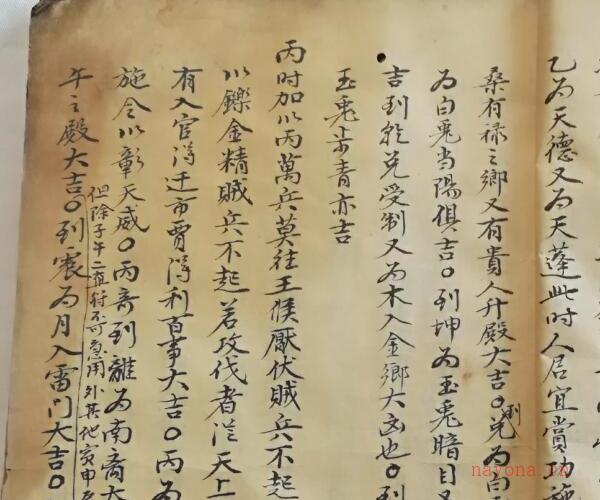 乙為天德又為天蓬此时人居宜賞功施
桑有祿之鄉又有貴人升殿大吉○到兌為
為白兔当陽俱吉○到坤為玉兔暗目又
吉到乾兌受制又為木入金鄉大凶也○到
玉兔步青亦吉
丙时加以丙萬兵莫往王侯厭伏賊兵不起
以鑠金精賊兵不起若攻伐者從天上
有入官得迁市賈得利百事大吉○丙為
施令以彰天威○丙奇到離為南
但除子午二直符不可急用外其他寅申
午之殿大吉○到震為月入雷門大吉○
nayona.cn